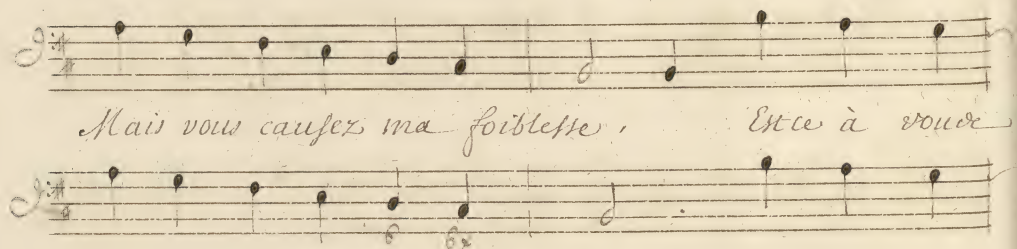 Mais vous causez ma foiblesse. Est ce à vous de
6 6x